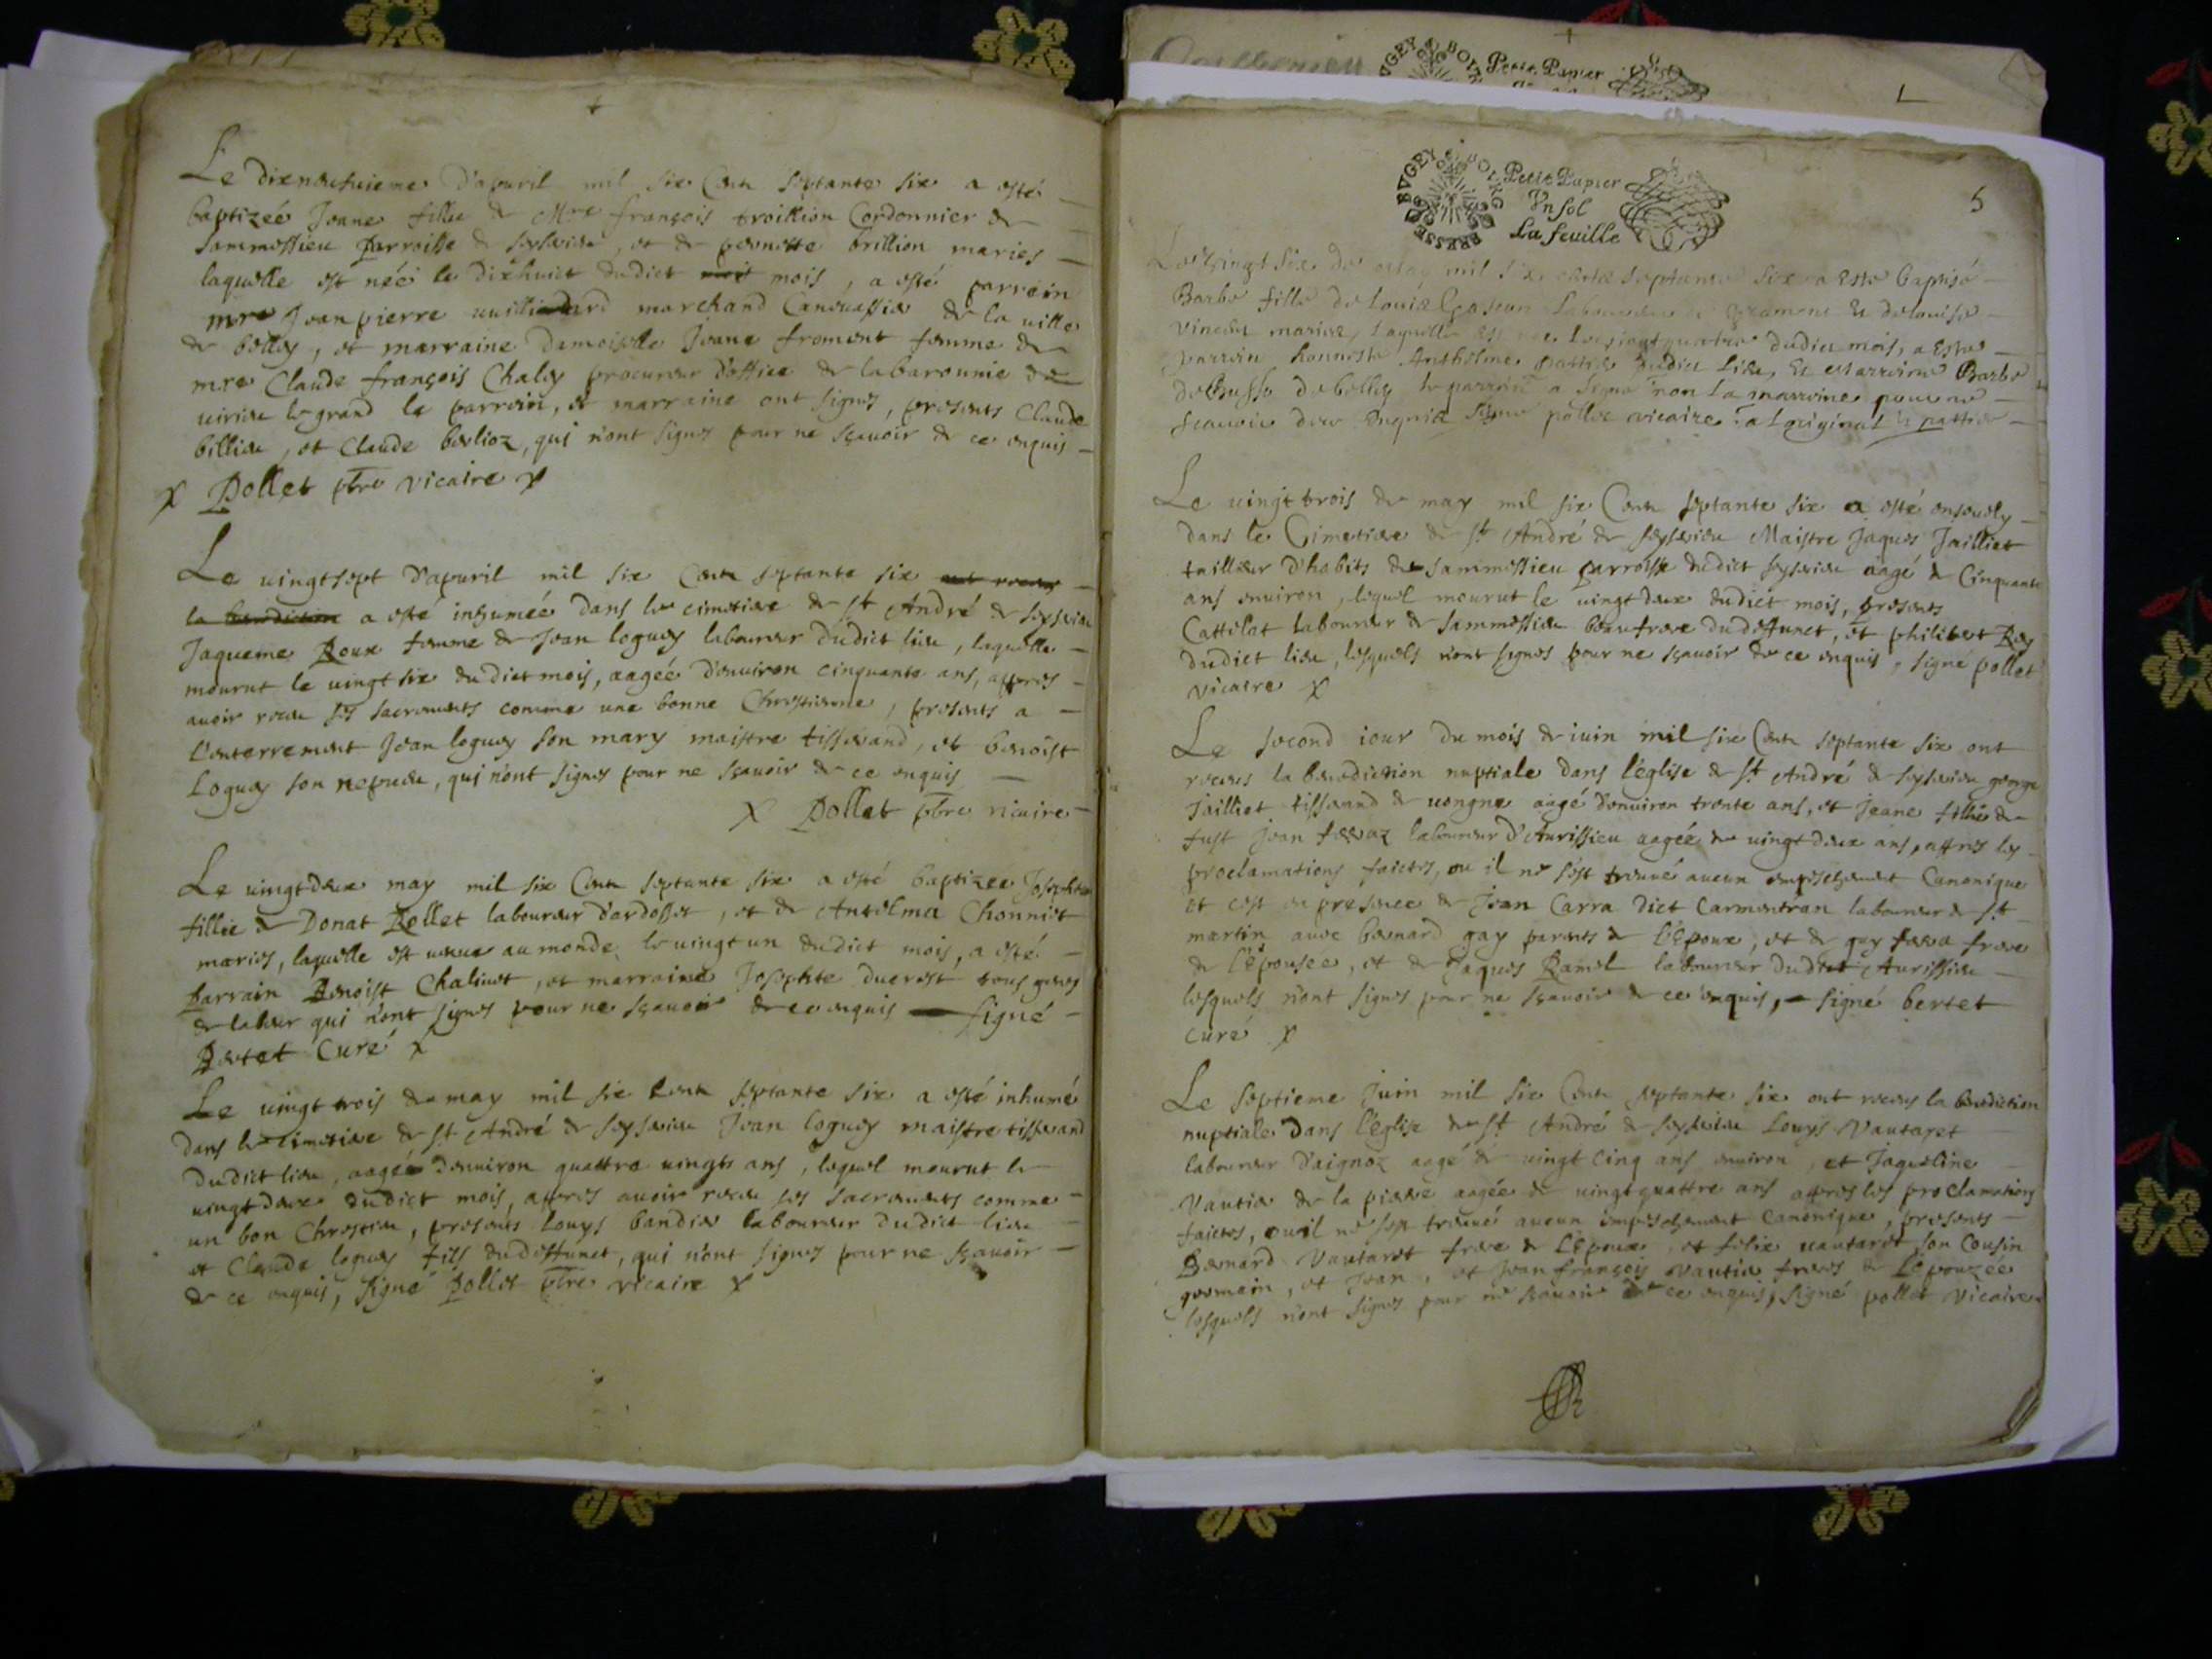 Le dixneufuieme d'apuril mil six Cents septante six a esté
baptizée Joane fillie de Mre françois troillion Cordonnier de
Sammessieu parroisse de seyserieu, et de pernette brillion maries
laquelle est néé le dixhuict dudict mois, a esté parrein
mre Jean pierre marchand Canouassier de la uille
de belley, et marraine damoiselle Joane froment femme de
mre Claude françois Chaley procureur d'office de la baronnie de
uirieu le grand le parrein, et marraine ont signes, presents Claude
billieu, et Claude berlioz, qui n'ont signes pour ne sçauoir de ce enquis
X Pollet pbre vicaire X
Le uingtsept d'apuril mil six Cents septante six
la a esté inhumée dans le cimetiere de st André de seyserieu
Jaqueme Roux femme de Jean loguey laboureur dudict lieu, laquelle
mourut le uingt six dudict mois, aagée d'enuiron cinquante ans, appres
auoir receu ses sacrements comme une bonne Chrestienne, presents a
l'enterrement Jean loguey son mary maistre tisserand, et benoist
Loguey son nepueu, qui n'ont signes pour ne sçauoir de ce enquis
X Pollet pbre vicaire
Le uingtdeux may mil six Cents septante six a esté baptizee Josephte
fillie de Donat Rollet laboureur d'ardosset, et de Antelma Chonniet
maries, laquelle est uenue au monde le uingt un dudict mois, a esté
parrain Benoist Chalinet, et marraine Josephte ducrest tous
qui n'ont signes pour ne sçauoir de ce enquis signé
Bertet Curé X
Le uingt trois de may mil six Cents septante six a esté inhumé
dans le cimetiere de st André de seyserieu Jean loguey maistre tisserand
dudict lieu, aagée d'enuiron quattre uingts ans, lequel mourut le
uingt deux dudict mois, apres auoir receu ses sacrements comme
un bon Chrestien, presents Louys bandier laboureur dudict lieu
et Claude loguey fils du deffunct, qui n'ont signes pour ne sçauoir
de ce enquis, signé Pollet pbre vicaire X
BVGEY BOVRG BRESSE
Petit Papier
Vn sol
La feuille
5
Le vingt six de may mil six cents septante six a esté baptisé
Barbe fille de Louis laboureur de et de louise
maries, laquelle est nee le vingtquatre dudict mois, a esté
parrein honneste Anthelme dudict lieu, et marreine Barbe
de belley le parrein a signé non la marreine pour ne
scauoir de ce enquis signé pollet vicaire a l'original
Le uingt trois de may mil six Cents septante six a esté enseuely
dans le Cimetiere de st André de seyserieu Maistre Jaques Jailliet
tailleur d'habits de sammessieu parroisse dudict seyserieu aagé de Cinquante
ans enuiron, lequel mourut le uingt deux dudict mois, presents
Cattelat laboureur de sammessieu beaufrere du deffunct, et philibert Rey
dudict lieu, lesquels n'ont signes pour ne sçauoir de ce enquis, signé pollet
vicaire X
Le second iour du mois de iuin mil six Cents septante six ont
receus la benediction nuptiale dans l'église de st André de seyserieu george
Jailliet tisserand de uongne aagé d'enuiron trente ans, et Jeane fillie de
fust Jean laboureur d'Aurissieu aagée de uingt deux ans, appres les
proclamations faictes, ou il ne s'est treuué aucun empeschement Canonique
et c'est en presence de Jean Carra dict Carmentran laboureur de st
martin auec bernard gay parents de l'Epoux, et de guy frere
de l'épousee, et de Jaques Ramel laboureur dudict Aurissieu
lesquels n'ont signes pour ne sçauoir de ce enquis, signé bertet
cure X
Le septieme Juin mil six Cents septante six ont receus la benediction
nuptiale dans l'église de st André de seyserieu Louys Vautaret
laboureur d'aignoz aagé de uingt cinq ans enuiron, et Jaqueline
Vautier de la pierre aagée de uingtquattre ans appres les proclamations
faictes, ou il ne s'est treuué aucun empeschement canonique, presents
Bernard Vautaret frere de l'époux, et felix uautaret son Cousin
germain, et Jean, et Jean françois Vautier freres de l'épouzée
lesquels n'ont signes pour ne sçauoir de ce enquis, signé pollet vicaire
Petit Papier